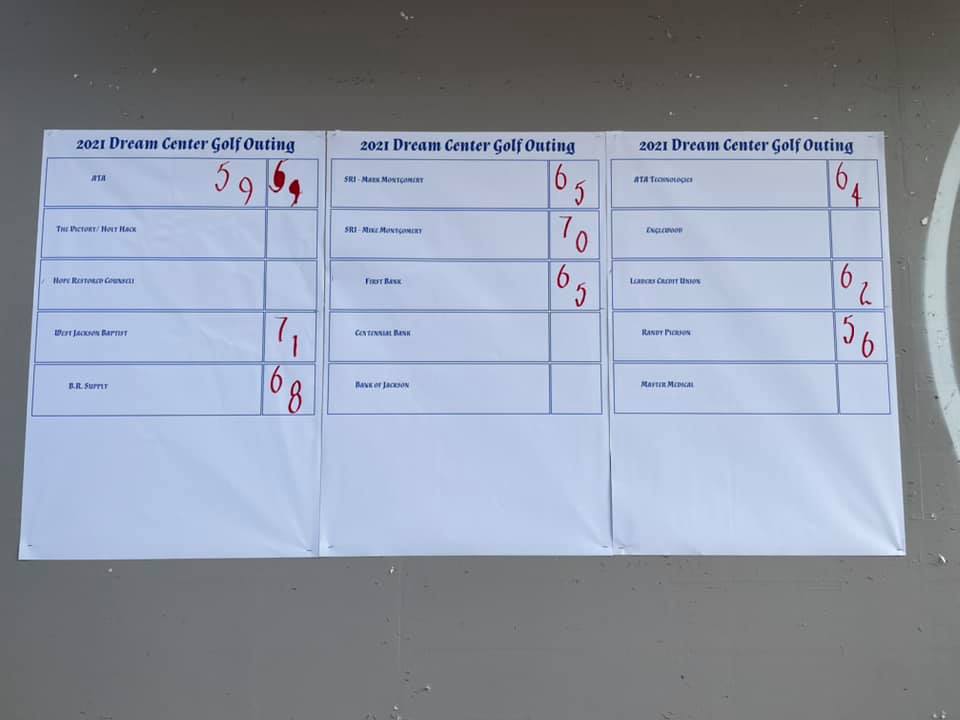 2021 Dream Center Golf Outing
ATA 59
The Victory/ Holy Hack
Hope Restored Counseli
West Jackson Baptist 71
B.R. Supply 68
2021 Dream Center Golf Outing
SRI - Mark Montgomery 65
SRI - Mike Montgomery 70
First Bank 65
Centennial Bank
Bank of Jackson
2021 Dream Center Golf Outing
ATA Technologies 64
Englewood
Leaders Credit Union 62
Randy Pierson 56
Master Medical